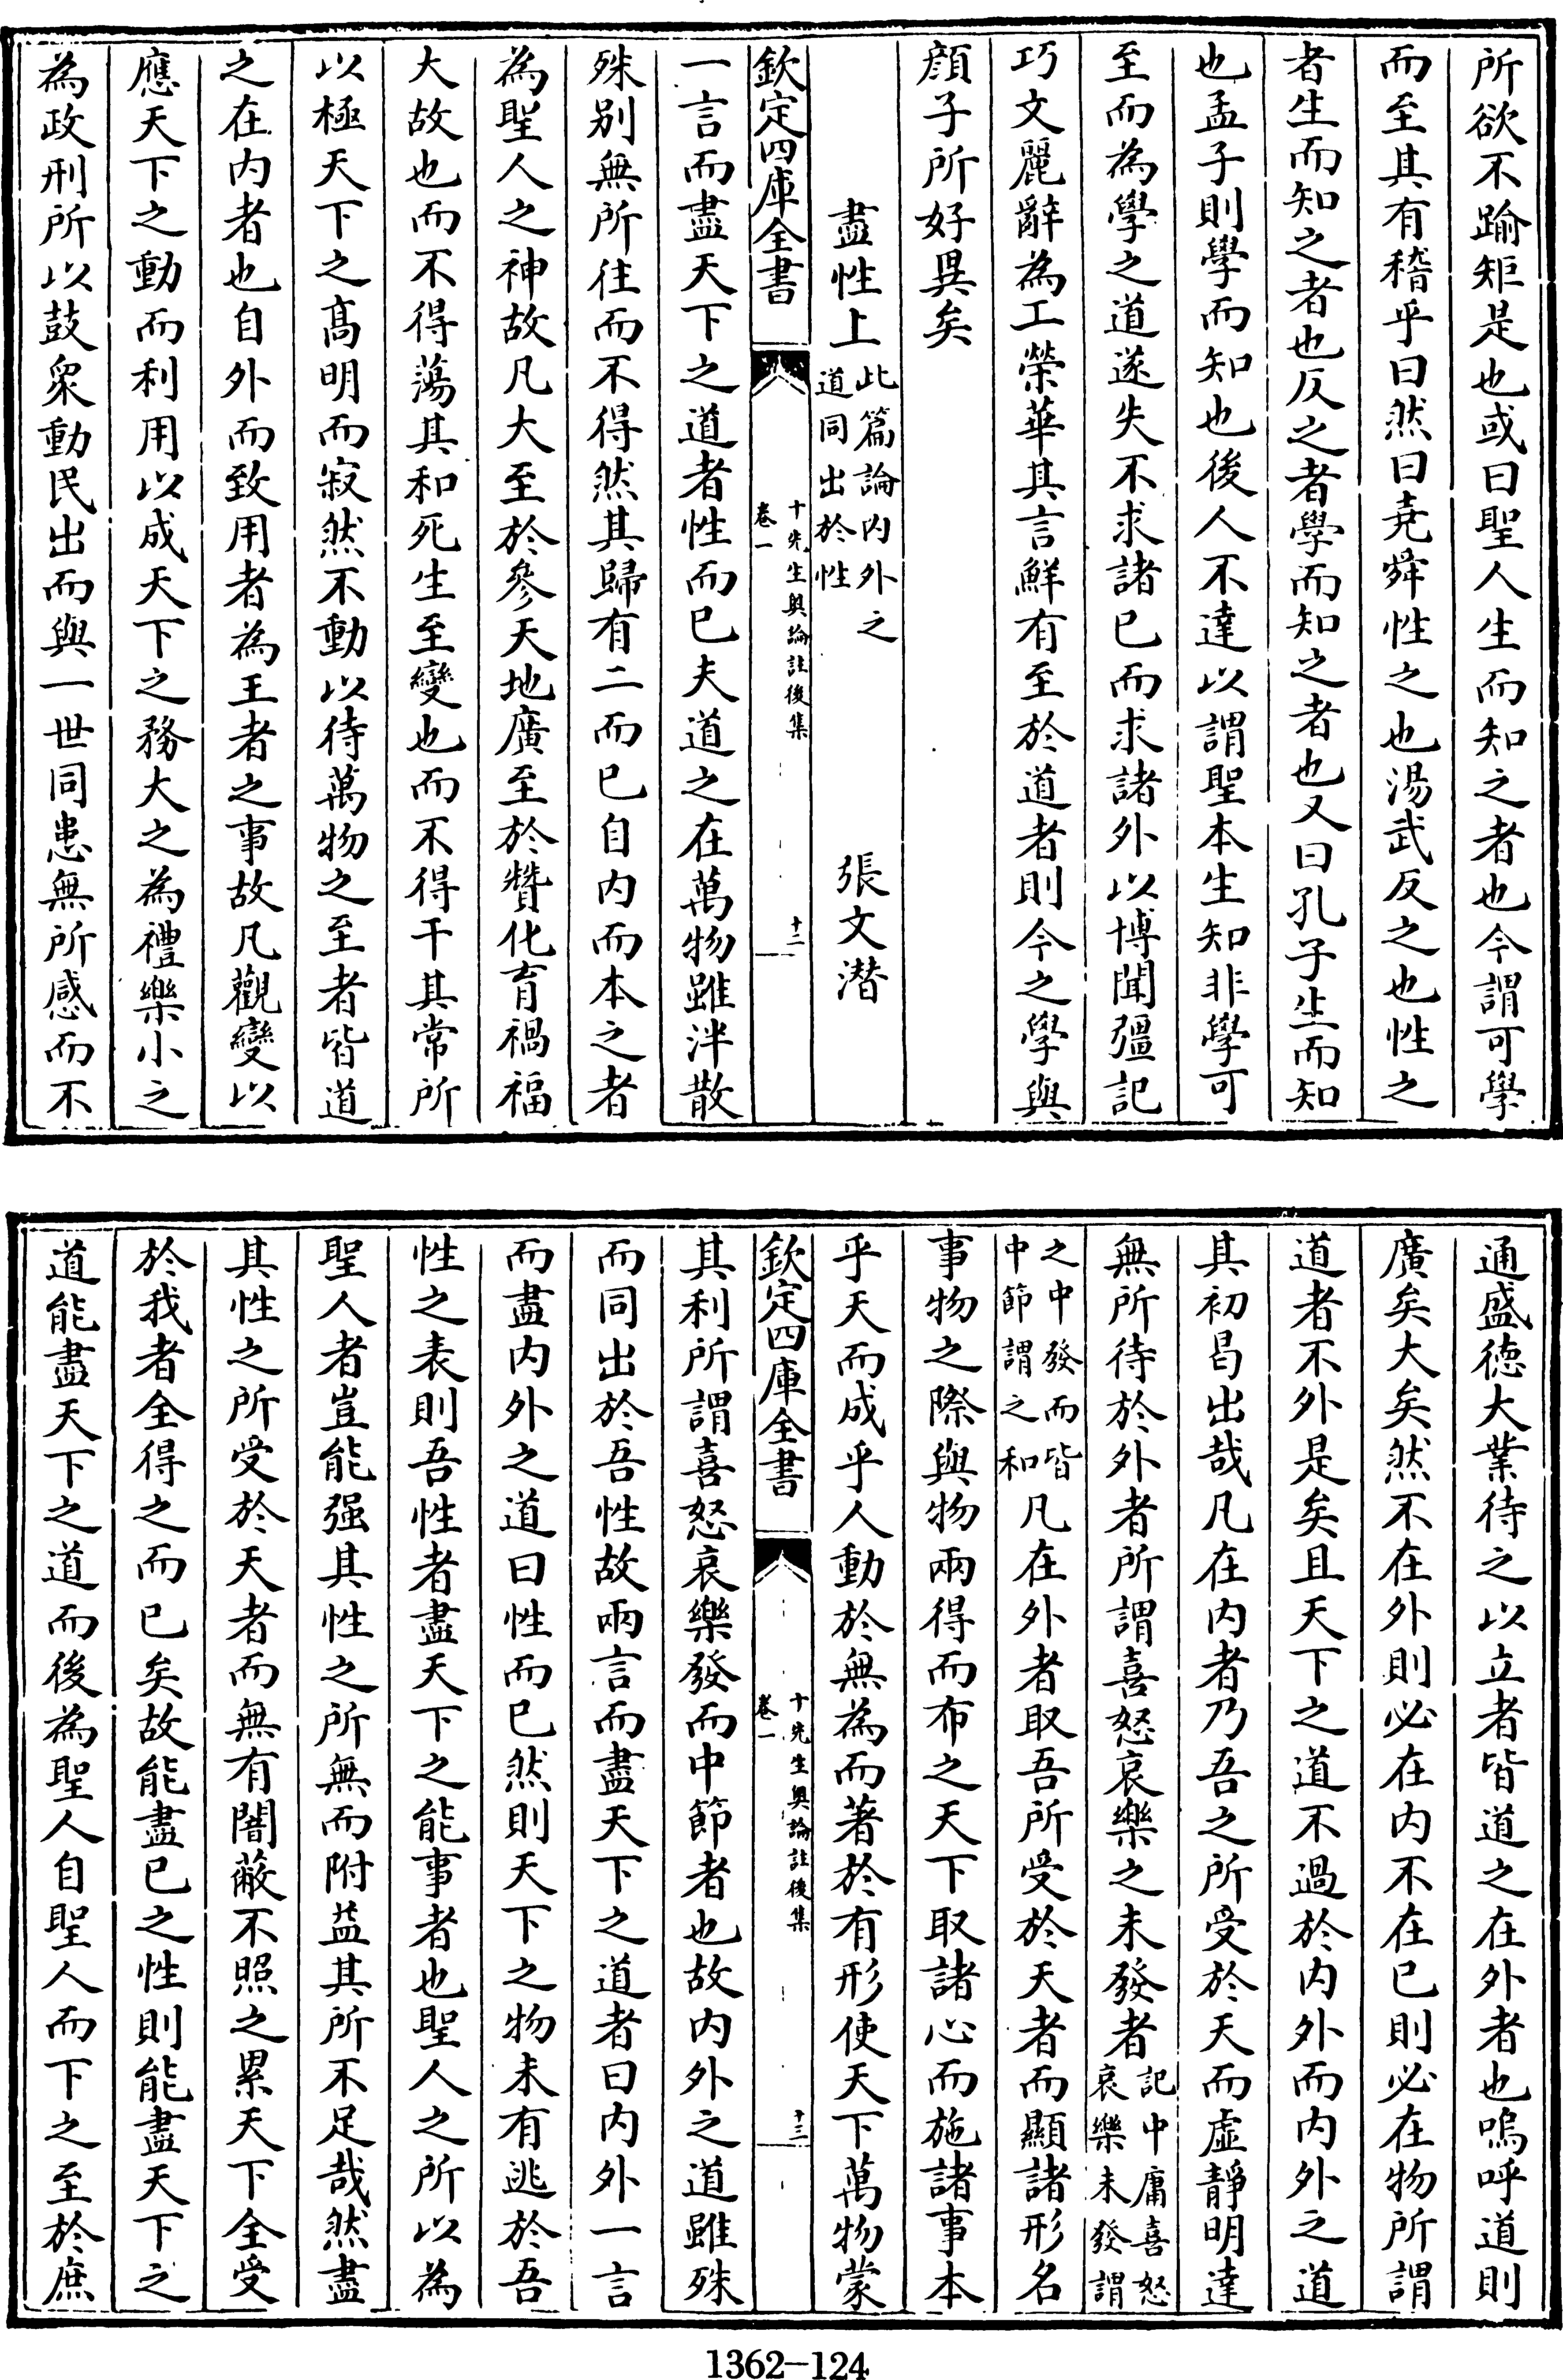 所欲不踰矩是也或曰聖人生而知之者也今謂可學
而至其有稽乎曰然曰堯舜性之也湯武反之也性之
者生而知之者也反之者學而知之者也又曰孔子生而知
也孟子則學而知也後人不達以謂聖本生知非學可
至而為學之道遂失不求諸已而求諸外以博聞彊記
巧文麗辭為工榮華其言鮮有至於道者則今之學與
顔子所好異矣
盡性上此篇論内外之道同出於性 張文潜
欽定四庫全書 十先生奥論註後集 卷一 十二
一言而盡天下之道者性而已夫道之在萬物雖泮散
殊别無所往而不得然其歸有二而已自内而本之者
為聖人之神故凡大至於參天地廣至於贊化育禍福
大故也而不得蕩其和死生至變也而不得干其常所
以極天下之髙明而寂然不動以待萬物之至者皆道
之在内者也自外而致用者為王者之事故凡觀變以
應天下之動而利用以成天下之務大之為禮樂小之
為政刑所以鼓衆動民出而與一世同患無所感而不
通盛徳大業待之以立者皆道之在外者也嗚呼道則
廣矣大矣然不在外則必在内不在已則必在物所謂
道者不外是矣且天下之道不過於内外而内外之道
其初曷出哉凡在内者乃吾之所受於天而虚靜明達
無所待於外者所謂喜怒哀樂之未發者記中庸喜怒哀樂未發謂
之中發而皆中節謂之和凡在外者取吾所受於天者而顯諸形名
事物之際與物兩得而布之天下取諸心而施諸事本
乎天而成乎人動於無為而著於有形使天下萬物蒙
欽定四庫全書 十先生奥論註後集 卷一 十三
其利所謂喜怒哀樂發而中節者也故内外之道雖殊
而同出於吾性故兩言而盡天下之道者曰内外一言
而盡内外之道曰性而已然則天下之物未有逃於吾
性之表則吾性者盡天下之能事者也聖人之所以為
聖人者豈能强其性之所無而附益其所不足哉然盡
其性之所受於天者而無有闇蔽不照之累天下全受
於我者全得之而已矣故能盡已之性則能盡天下之
道能盡天下之道而後為聖人自聖人而下之至於庶
1362-124